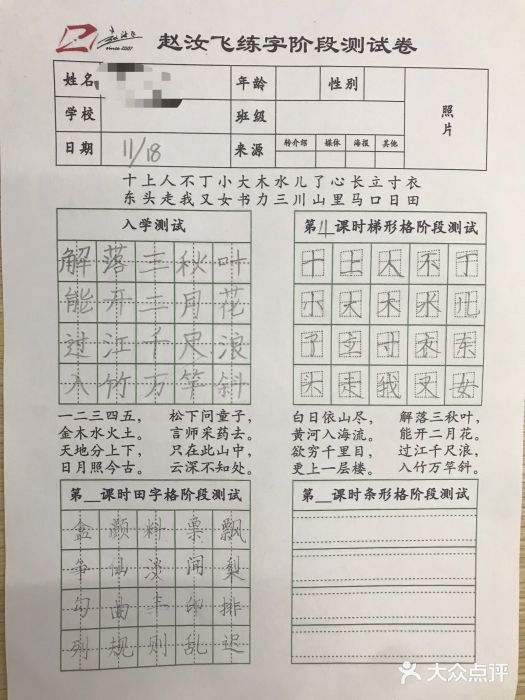 赵汝飞 since 2007
赵汝飞练字阶段测试卷
姓名 年龄 性别 照片
学校 班级
日期 11/18 来源 转介绍 媒体 海报 其他
十上人不丁小大木水儿了心长立寸衣
东头走我又女书力三川山里马口日田
入学测试
解落三秋叶
能开二月花
过江千尺浪
入竹万竿斜
第11课时梯形格阶段测试
十上人不丁
小大木水儿
了立寸衣东
头走我又女
一二三四五, 松下问童子,
金木水火土。 言师采药去。
天地分上下, 只在此山中,
日月照今古。 云深不知处。
白日依山尽, 解落三秋叶,
黄河入海流。 能开二月花。
欲穷千里目, 过江千尺浪,
更上一层楼。 入竹万竿斜。
第__课时田字格阶段测试
盒灏料栗飘
争仙淡闻梨
勾曲车印排
列规则乱迟
第__课时条形格阶段测试
大众点评